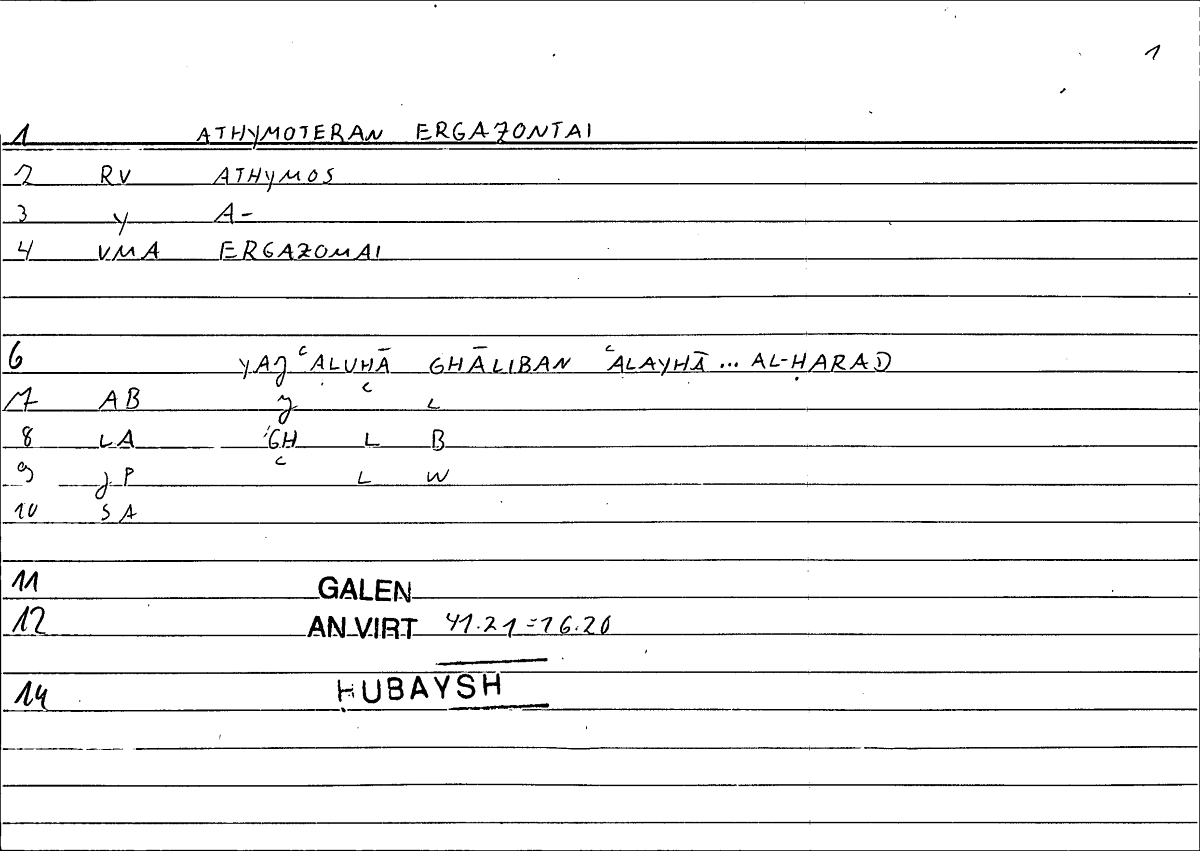 1
1 ATHYMOTERAN ERGAZONTAI
2 RV ATHYMOS
3 Y A-
4 VMA ERGAZOMAI
6 YAJʿALUHĀ GHĀLIBAN ʿALAYHĀ ... AL-ḤARAD
7 AB J ʿ L
8 LA GH L B
9 JP ʿ L W
10 SA
11 GALEN
12 AN.VIRT 41.21=16.20
14 ḤUBAYSH